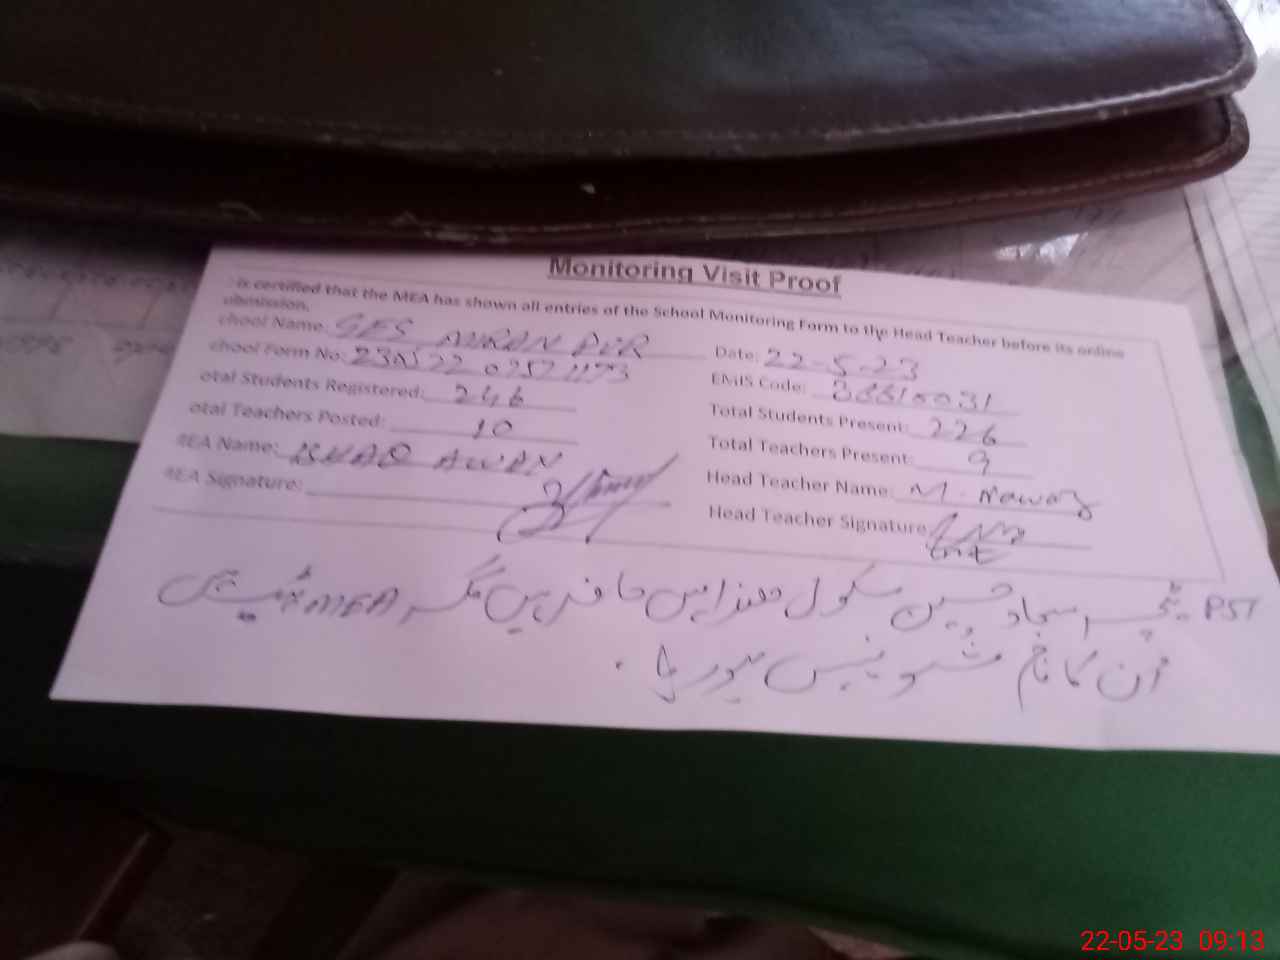 Monitoring Visit Proof
is certified that the MEA has shown all entries of the School Monitoring Form to the Head Teacher before its online
ubmission.
chool Name: GES PUR
Date: 22-5-23
chool Form No:
EMIS Code:
otal Students Registered: 246
Total Students Present: 226
otal Teachers Posted: 10
Total Teachers Present: 9
MEA Name: AWAN
Head Teacher Name: M. Nawaz
MEA Signature:
Head Teacher Signature
PST ٹیچر سجاد حسین سکول ھذا میں حاضر ہیں مگر MEA میں
اُن کا نام شو نہیں ہو رہا۔
22-05-23 09:13